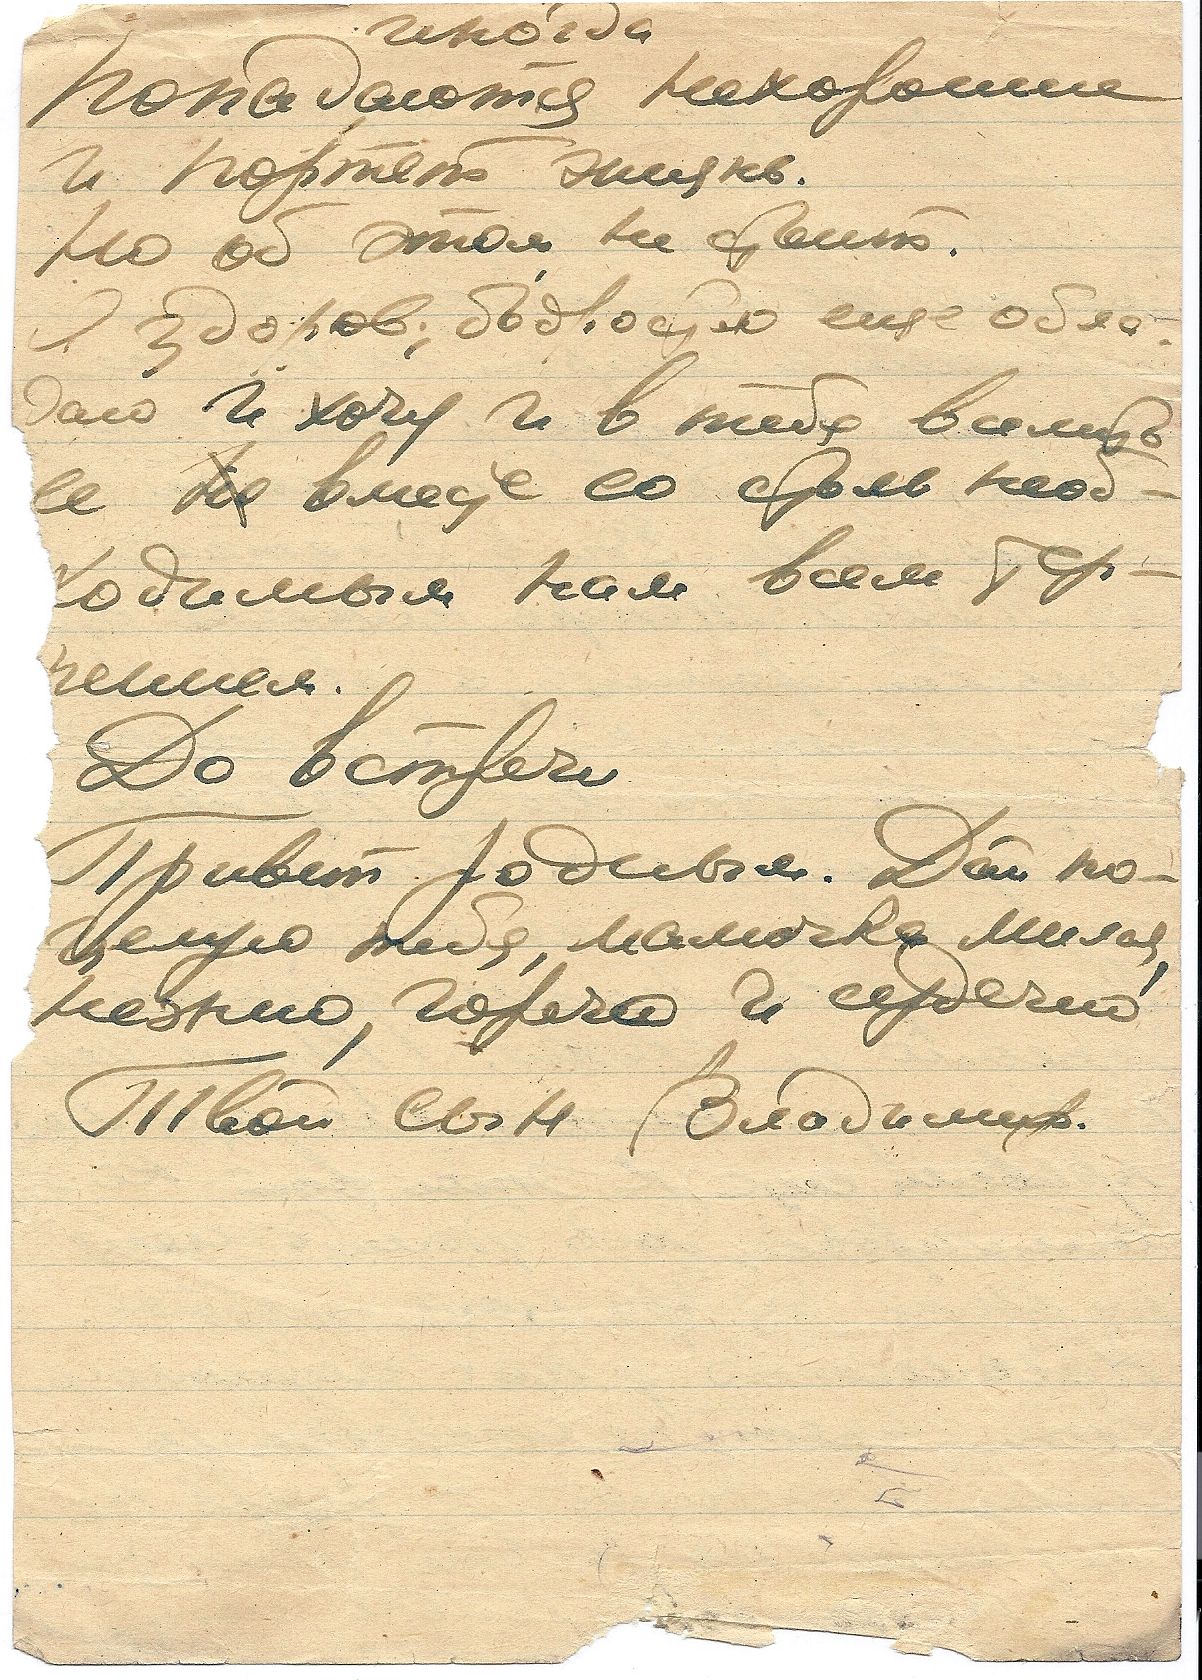 иногда
попадаются нехорошие
и портят жизнь.
Но об этом не стоит.
Я здоров, бодростью еще обла-
даю и хочу и в тебя вселить
ее вместе со столь необ-
ходимым нам всем тер-
пением.
До встречи
Привет родным. Дай по-
целую тебя, мамочка милая,
нежно, горячо и сердечно
Твой сын Владимир.